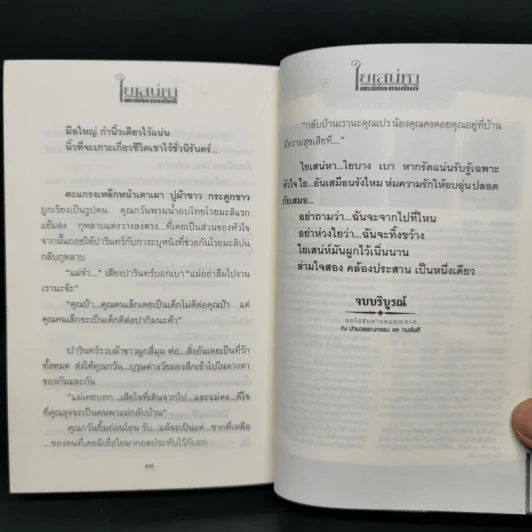 ใยเสน่หา
มือใหญ่ กำนิ้วเดียวไว้แน่น
นิ้วที่จะเกาะเกี่ยวชีวิตเขาไว้ชั่วนิรันดร์...
ตะแกรงเหล็กหน้าเตาเผา ปูผ้าขาว กระดูกขาว
ถูกเรียงเป็นรูปคน คุณกวินพรมน้ำอบไทยโรยมะลิแรก
แย้มลง กุหลาบแดงวางลงตรง...ที่เคยเป็นส่วนของหัวใจ
จากนั้นถอยให้ปารินทร์กับการะบุหนิงที่ช่วยกันโรยมะลิปน
กลีบกุหลาบ
“แม่จ๋า...” เสียงปารินทร์บอกเบา “แม่อย่าลืมไปงาน
เรานะจ๊ะ”
“คุณป้า...คุณคนเล็กเคยเป็นเด็กไม่ดีต่อคุณป้า แต่
คุณคนเล็กจะเป็นเด็กดีต่อปากิมนะค้า”
ปารินทร์รวบผ้าขาวผูกสี่มุม ห่อ...สิ่งอันเคยเป็นที่รัก
ทั้งหมด ส่งให้คุณกวิน...บุรุษต่างวัยมองลึกเข้าไปในดวงตา
ของกันและกัน
“แม่เคยบอก...เสียใจที่เดินจากไป...และแม่คง...ดีใจ
ที่คุณลุงจะเป็นคนพาแม่กลับบ้าน”
คุณกวินยิ้มอ่อนโยน รับ...แม้จะเป็นแค่...ซากที่เหลือ
...ของคนที่เคยมีเยื่อใยมากอดประทับไว้กับอก
ใยเสน่หา
“กลับบ้านเรานะคุณเปร น้องคุณคงคอยคุณอยู่ที่บ้าน
มีความสุขเสียที...”
ใยเสน่หา...ใยบาง เบา หากรัดแน่นรับรู้เฉพาะ
หัวใจ ใย...อันเสมือนรังไหม ห่มความรักให้อบอุ่นปลอด
ภัยเสมอ...
อย่าถามว่า...ฉันจะจากไปที่ไหน
อย่าห่วงใยว่า...ฉันจะทิ้งขว้าง
ใยเสน่ห์มันผูกไว้เนิ่นนาน
ล่ามใจสอง คล้องประสาน เป็นหนึ่งเดียว
จบบริบูรณ์